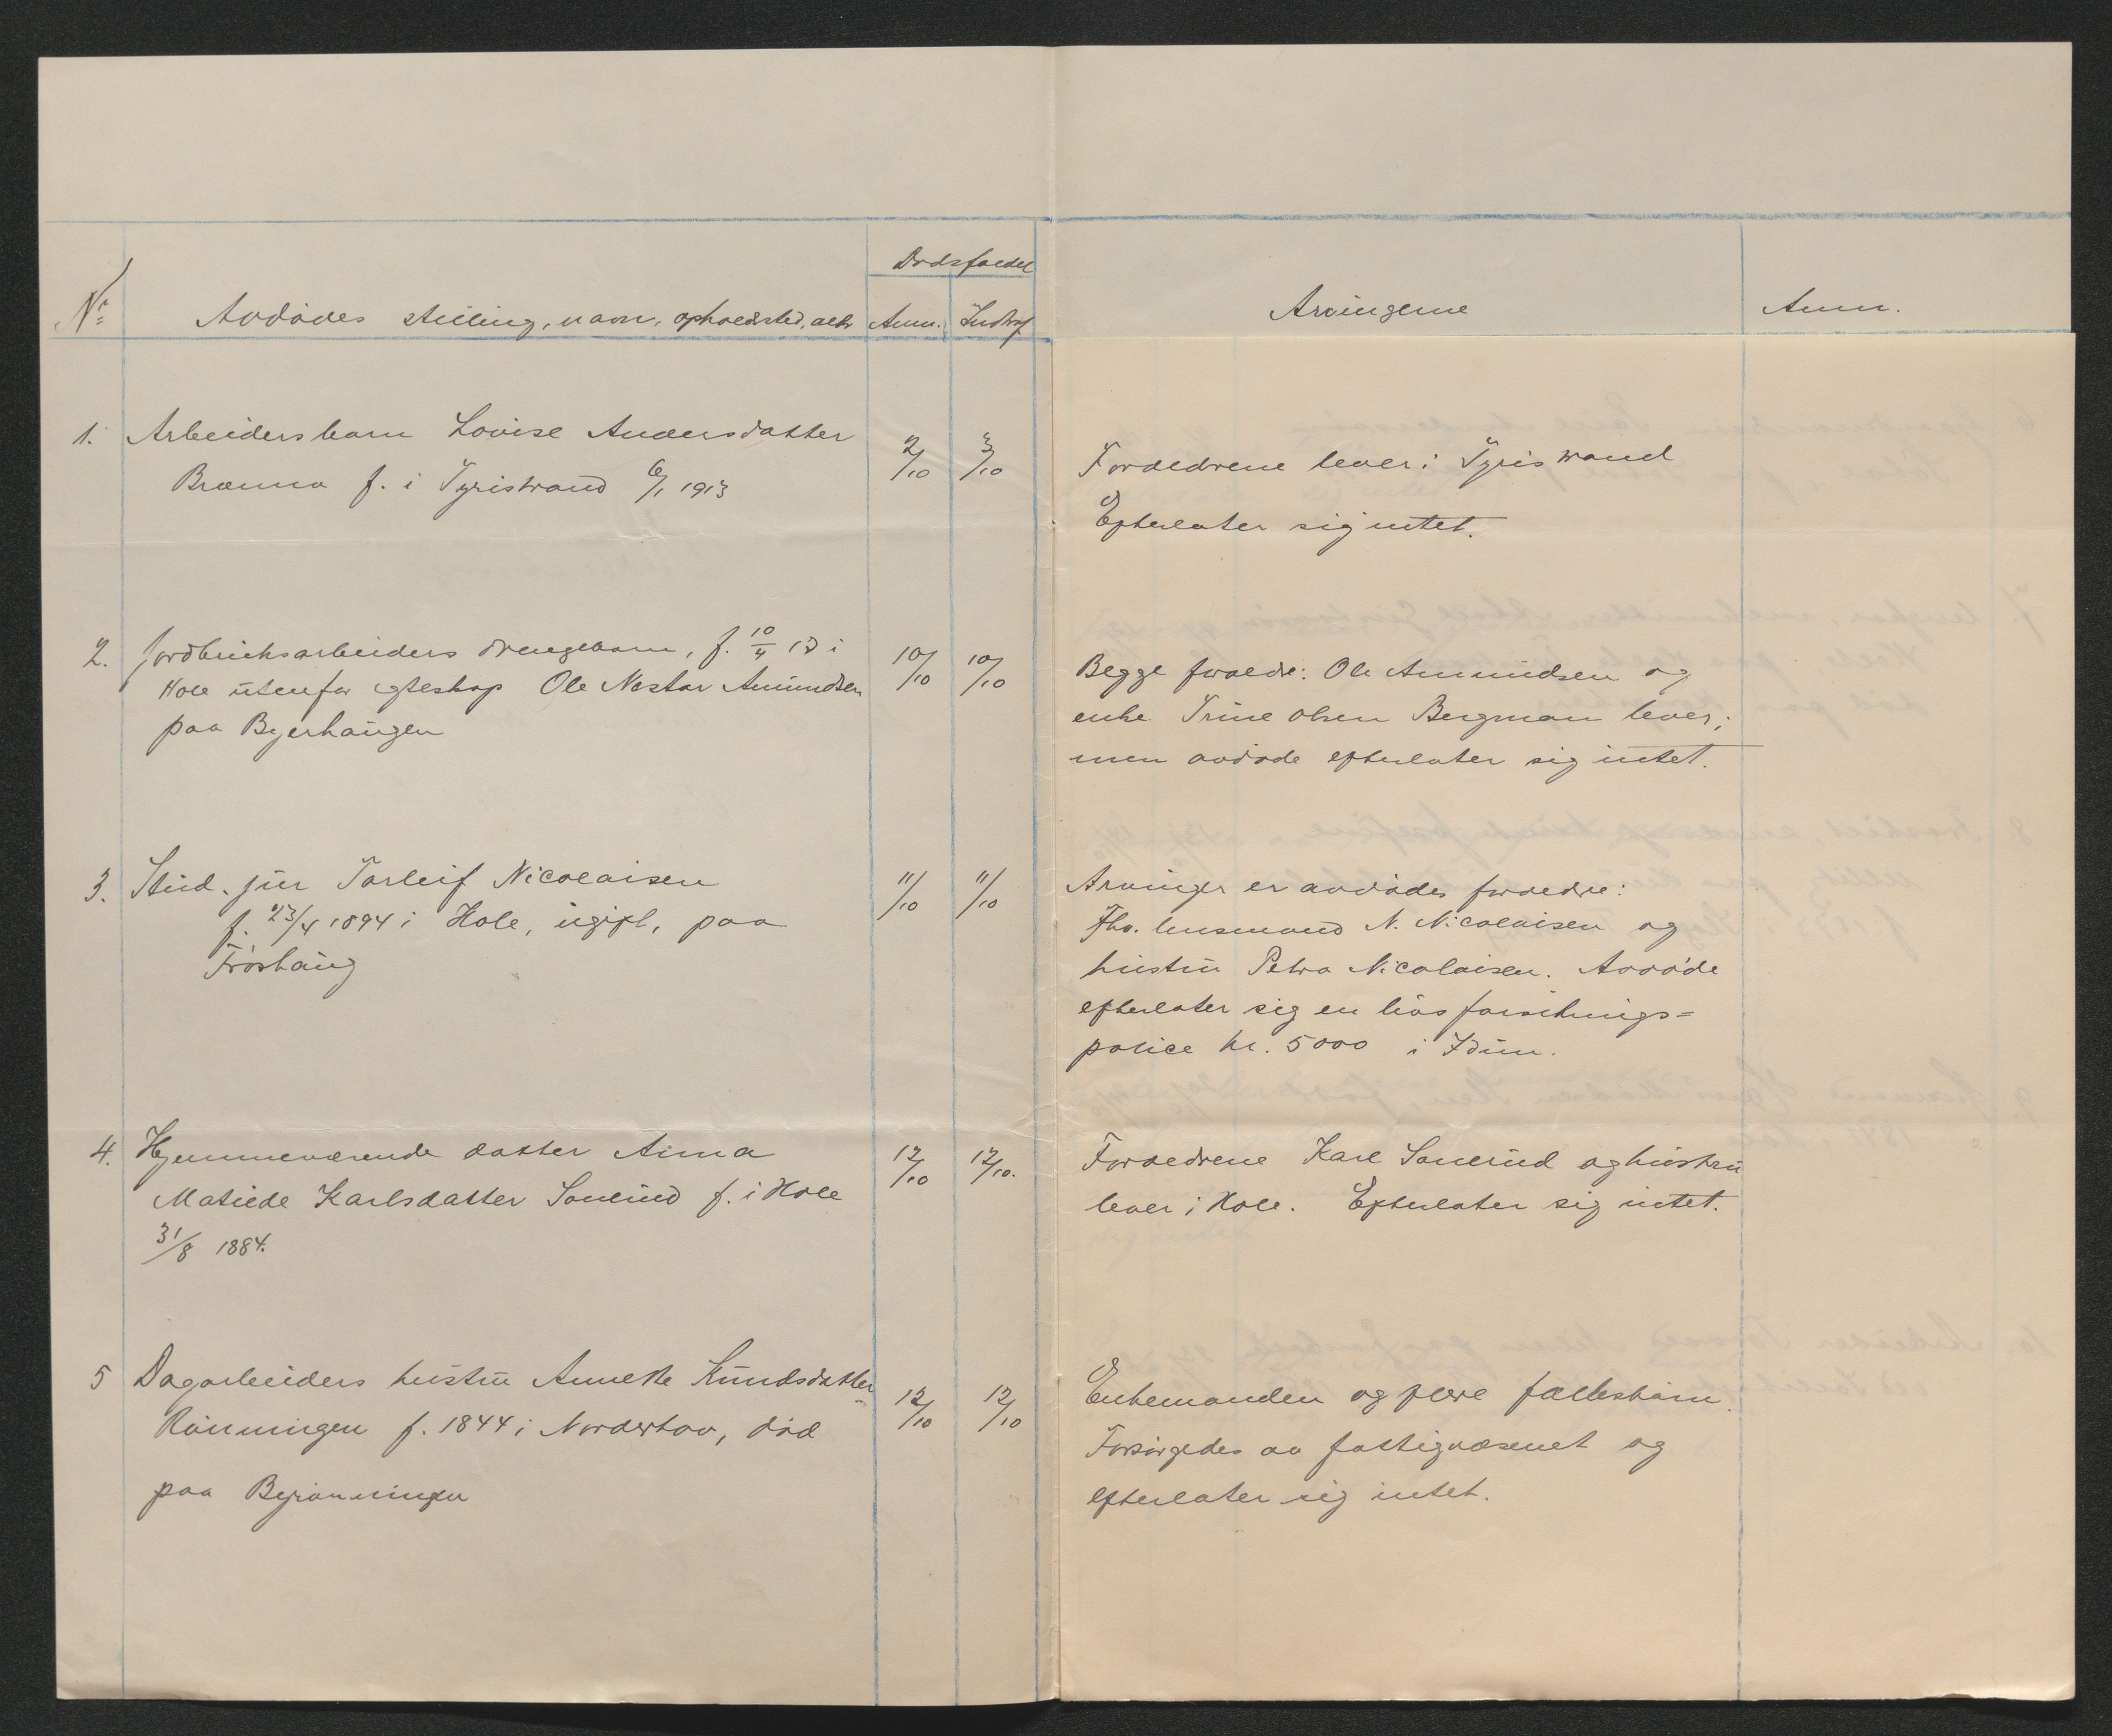 Dødsfaldet
No Avdødes stilling, navn, opholdssted, alder Anm. Indtraf Arvingerne Anm.
1. Arbeidersbarn Lovise Andersdatter 2/10 3/10
Brænna f. i Tyristrand 6/1 1913
Forældrene lever i Tyristrand
Efterlater sig intet.
2. Jordbruksarbeiders drengebarn, f. 10/4 13 i 10/10 10/10
Hole utenfor egteskap Ole Nestor Amundsen
paa Byerhaugen
Begge forældre: Ole Amundsen og
enke Trine Olsen Bergman lever;
men avdøde efterlater sig intet.
3. Stud. jur Torleif Nicolaisen 11/10 11/10
f. 23/4 1894 i Hole, ugift, paa
Frøshaug
Arvinger er avdødes forældre:
Fhv. lensmand N. Nicolaisen og
hustru Petra Nicolaisen. Avdøde
efterlater sig en livsforsikrings=
police kr. 5000 i Idun.
4. Hjemmeværende datter Anna 12/10 12/10.
Matilde Karlsdatter Sonerud f. i Hole
31/8 1884.
Forældrene Karl Sonerud og hustru
lever i Hole. Efterlater sig intet.
5 Dagarbeiders hustru Annette Knudsdatter 12/10 12/10
Rønningen f. 1844 i Norderhov, død
paa Byrønningen
Enkemanden og flere fællesbarn.
Forsørgedes av fattigvæsenet og
efterlater sig intet.